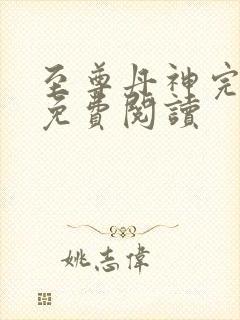 至尊丹神完
免費閱讀
姚志偉